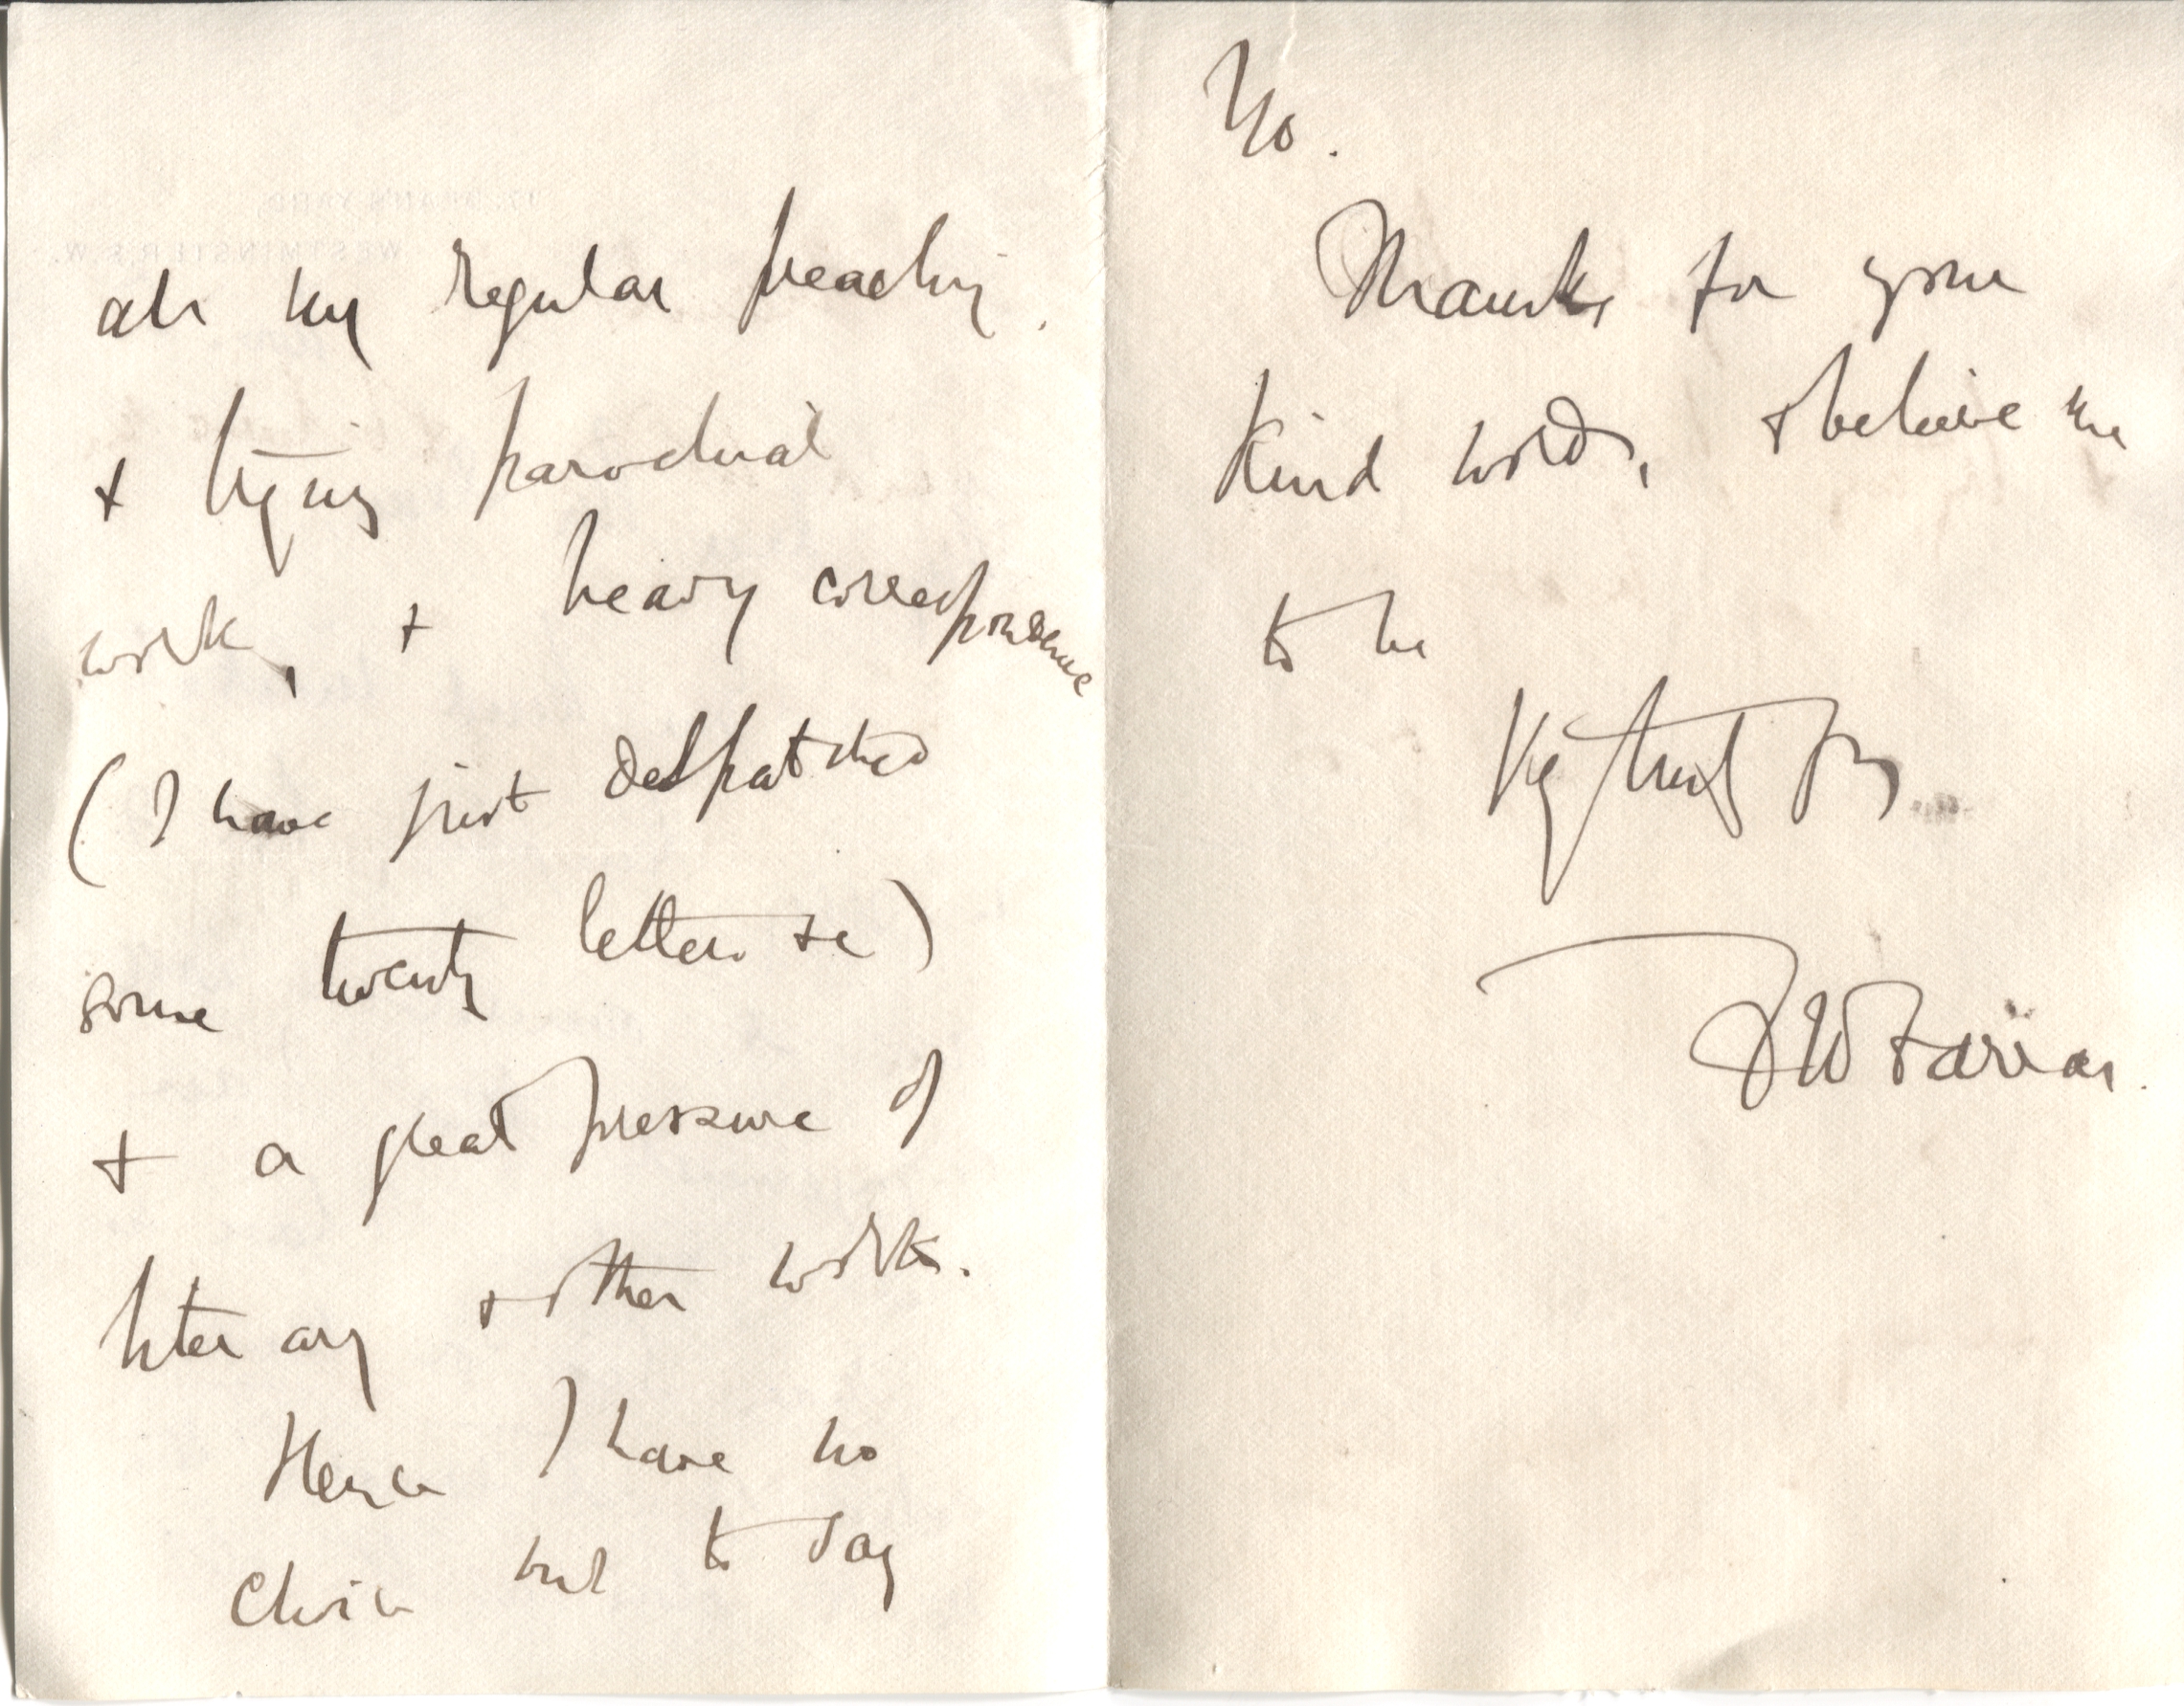 all my regular preaching.
& trying parochial
work, & heavy correspondence
(I have just despatched
some twenty letters &c)
& a great pressure of
literary & other work.
Hence I have no
choice but to say
No.
Thanks for your
kind words, & believe me
to be
Vy truly yrs
FWFarrar.
17. DEAN'S YARD,
WESTMINSTER S.W.